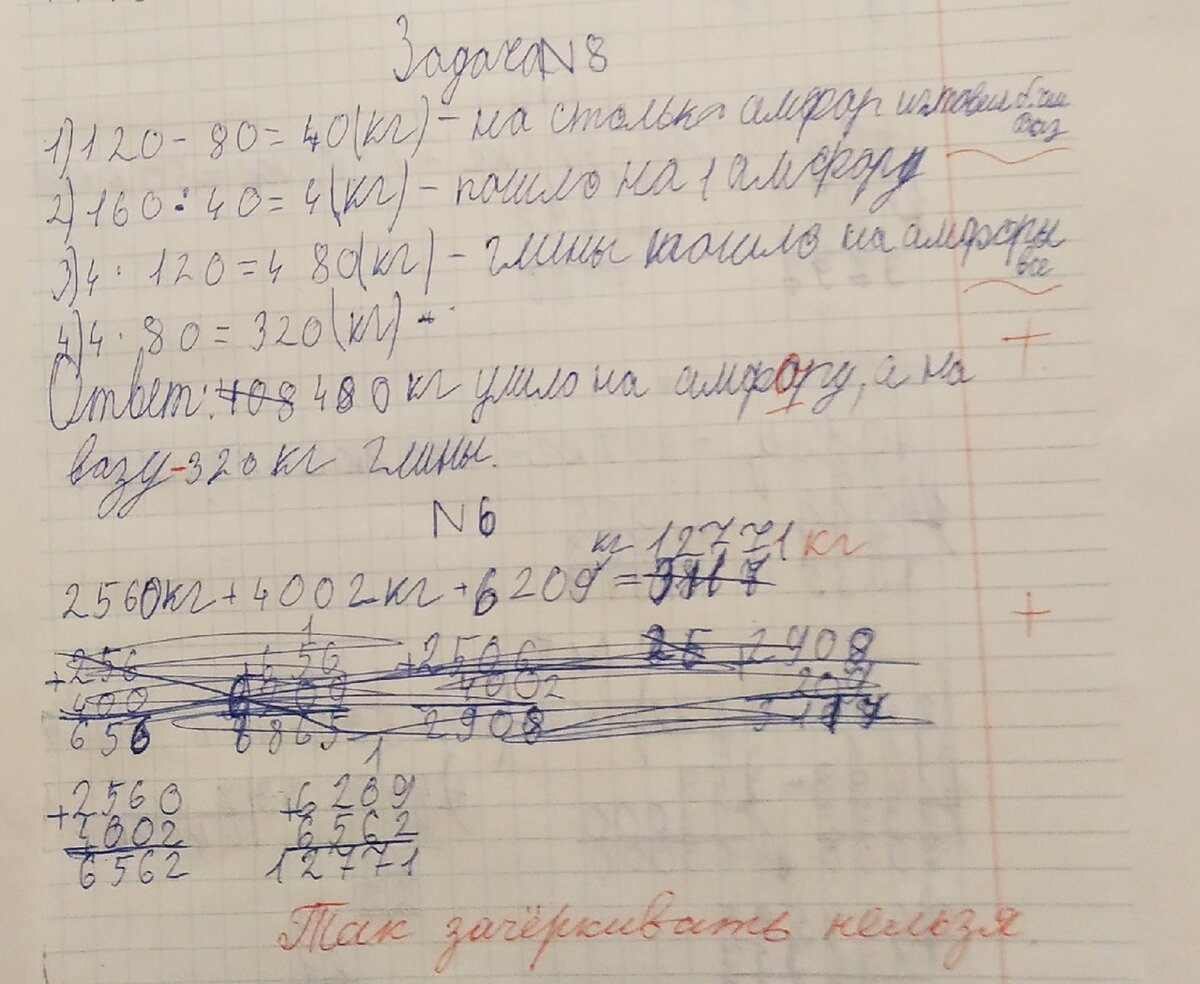 Задача N 8
1) 120 - 80 = 40 (кг) - на столька амфар изготовил больше ваз
2) 160 : 40 = 4 (кг) - пошло на 1 амфору
3) 4 · 120 = 480 (кг) - глины пошло на амфоры все
4) 4 · 80 = 320 (кг) -
Ответ: 408 480 кг ушло на амфору, а на
вазу - 320 кг глины.
N 6
кг 12771 кг
2560 кг + 4002 кг + 6209 =
+256 +656 +2506 26 +2908
400 4002 209
656 8865 2908
1
+2560 +6209
4002 6562
6562 12771
Так зачёркивать нельзя.